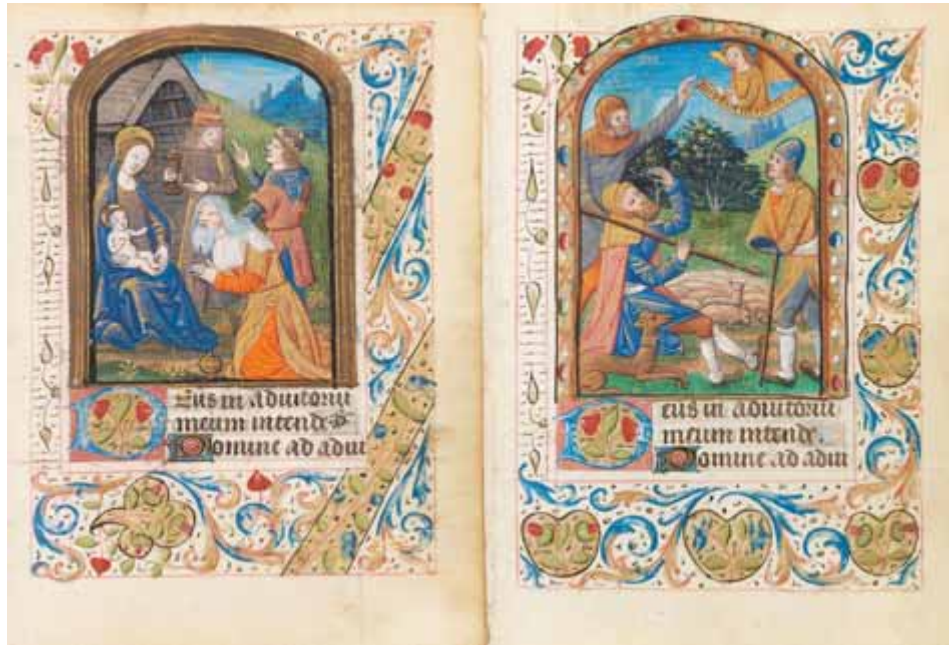 Deus in adiutoriu
meum intende
Domine ad adiu
Deus in adiutoriu
meum intende.
Domine ad adiu